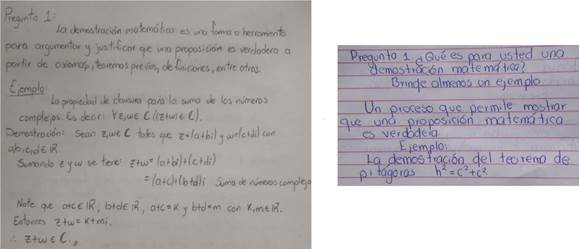 Pregunta 1:
La demostración matemática es una forma o herramienta
para argumentar y justificar que una proposición es verdadera a
partir de axiomas, teoremas previos, definiciones, entre otros.
Ejemplo:
La propiedad de clausura para la suma de los números
complejos. Es decir: ∀z,w∈ℂ (z+w∈ℂ).
Demostración: Sean z,w∈ℂ tales que z=(a+bi) y w=(c+di) con
a,b,c,d∈ℝ.
Sumando z y w se tiene: z+w=(a+bi)+(c+di)
=(a+c)+(b+d)i Suma de números complejos
Note que a+c∈ℝ, b+d∈ℝ, a+c=k y b+d=m con k,m∈ℝ.
Entonces z+w=k+mi.
∴ z+w∈ℂ.
Pregunta 1 ¿Qué es para usted una
demostración matemática?
Brinde almenos un ejemplo
Un proceso que permite mostrar
que una proposición matemática
es verdadera
Ejemplo:
La demostración del teorema de
pitágoras h²=c²+c²